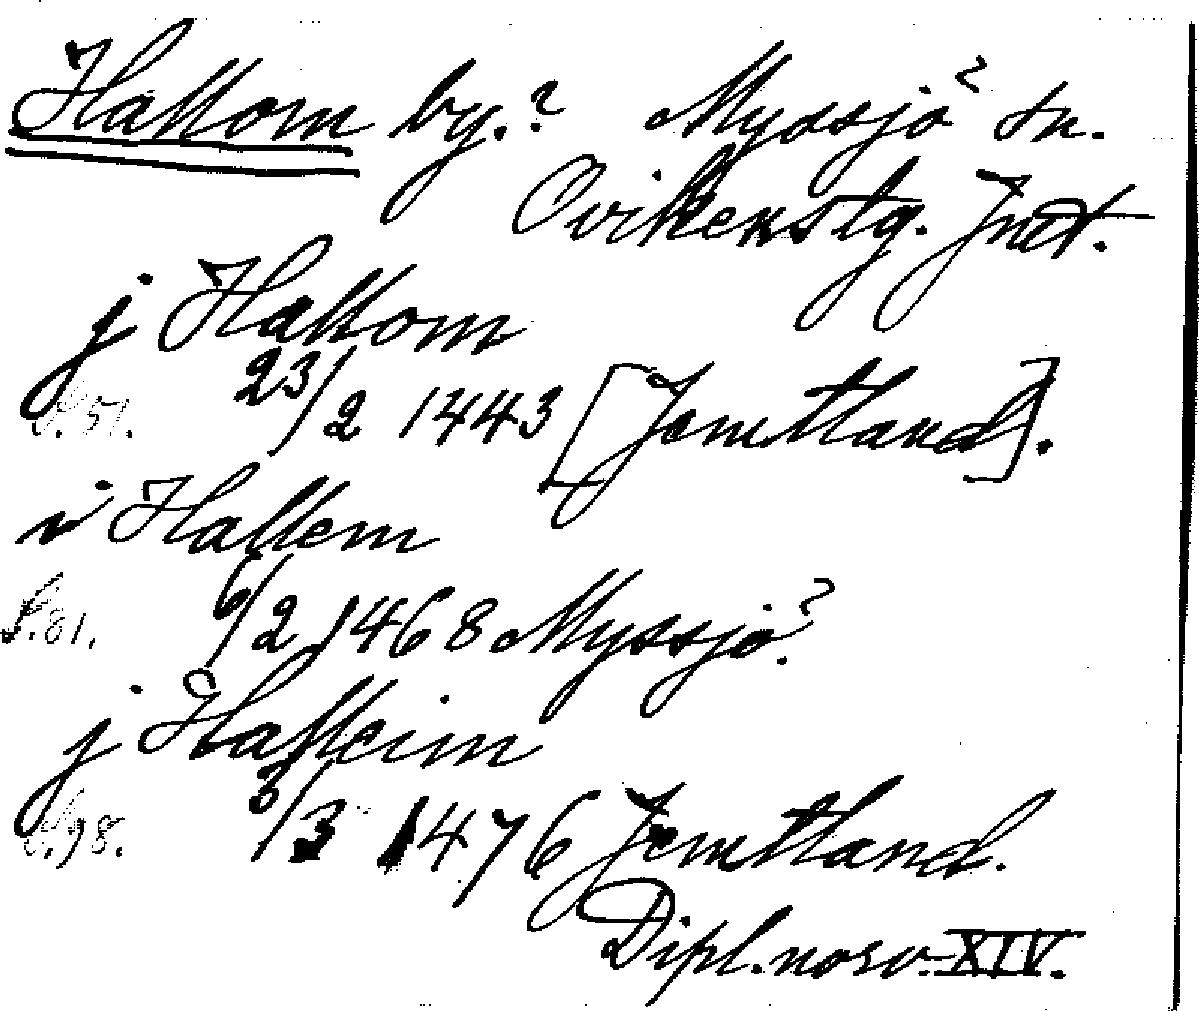 Hallom by.? Myssjö? sn.
Ovikenstg. Jmt.
j Hallom
S.51. 23/2 1443 [Jemtland].
i Hallem
S.81. 6/2 1468 Myssjö?.
j Halleim
S.98. 3/3 1476 Jemtland.
Dipl. norv. XIV.